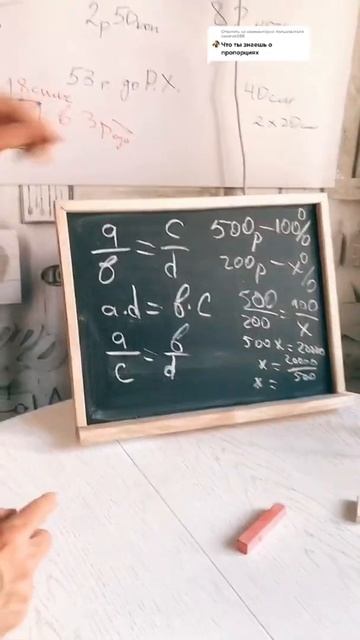 2р 50коп
8р
Ответить на комментарий пользователя
Что ты знаешь о
пропорциях
53 г до Р.Х.
63 года
40см
a/b = c/d
a·d = b·c
a/c = b/d
500р – 100%
200р – x%
500/200 = 100/x
500x = 20000
x = 20000/500
x =